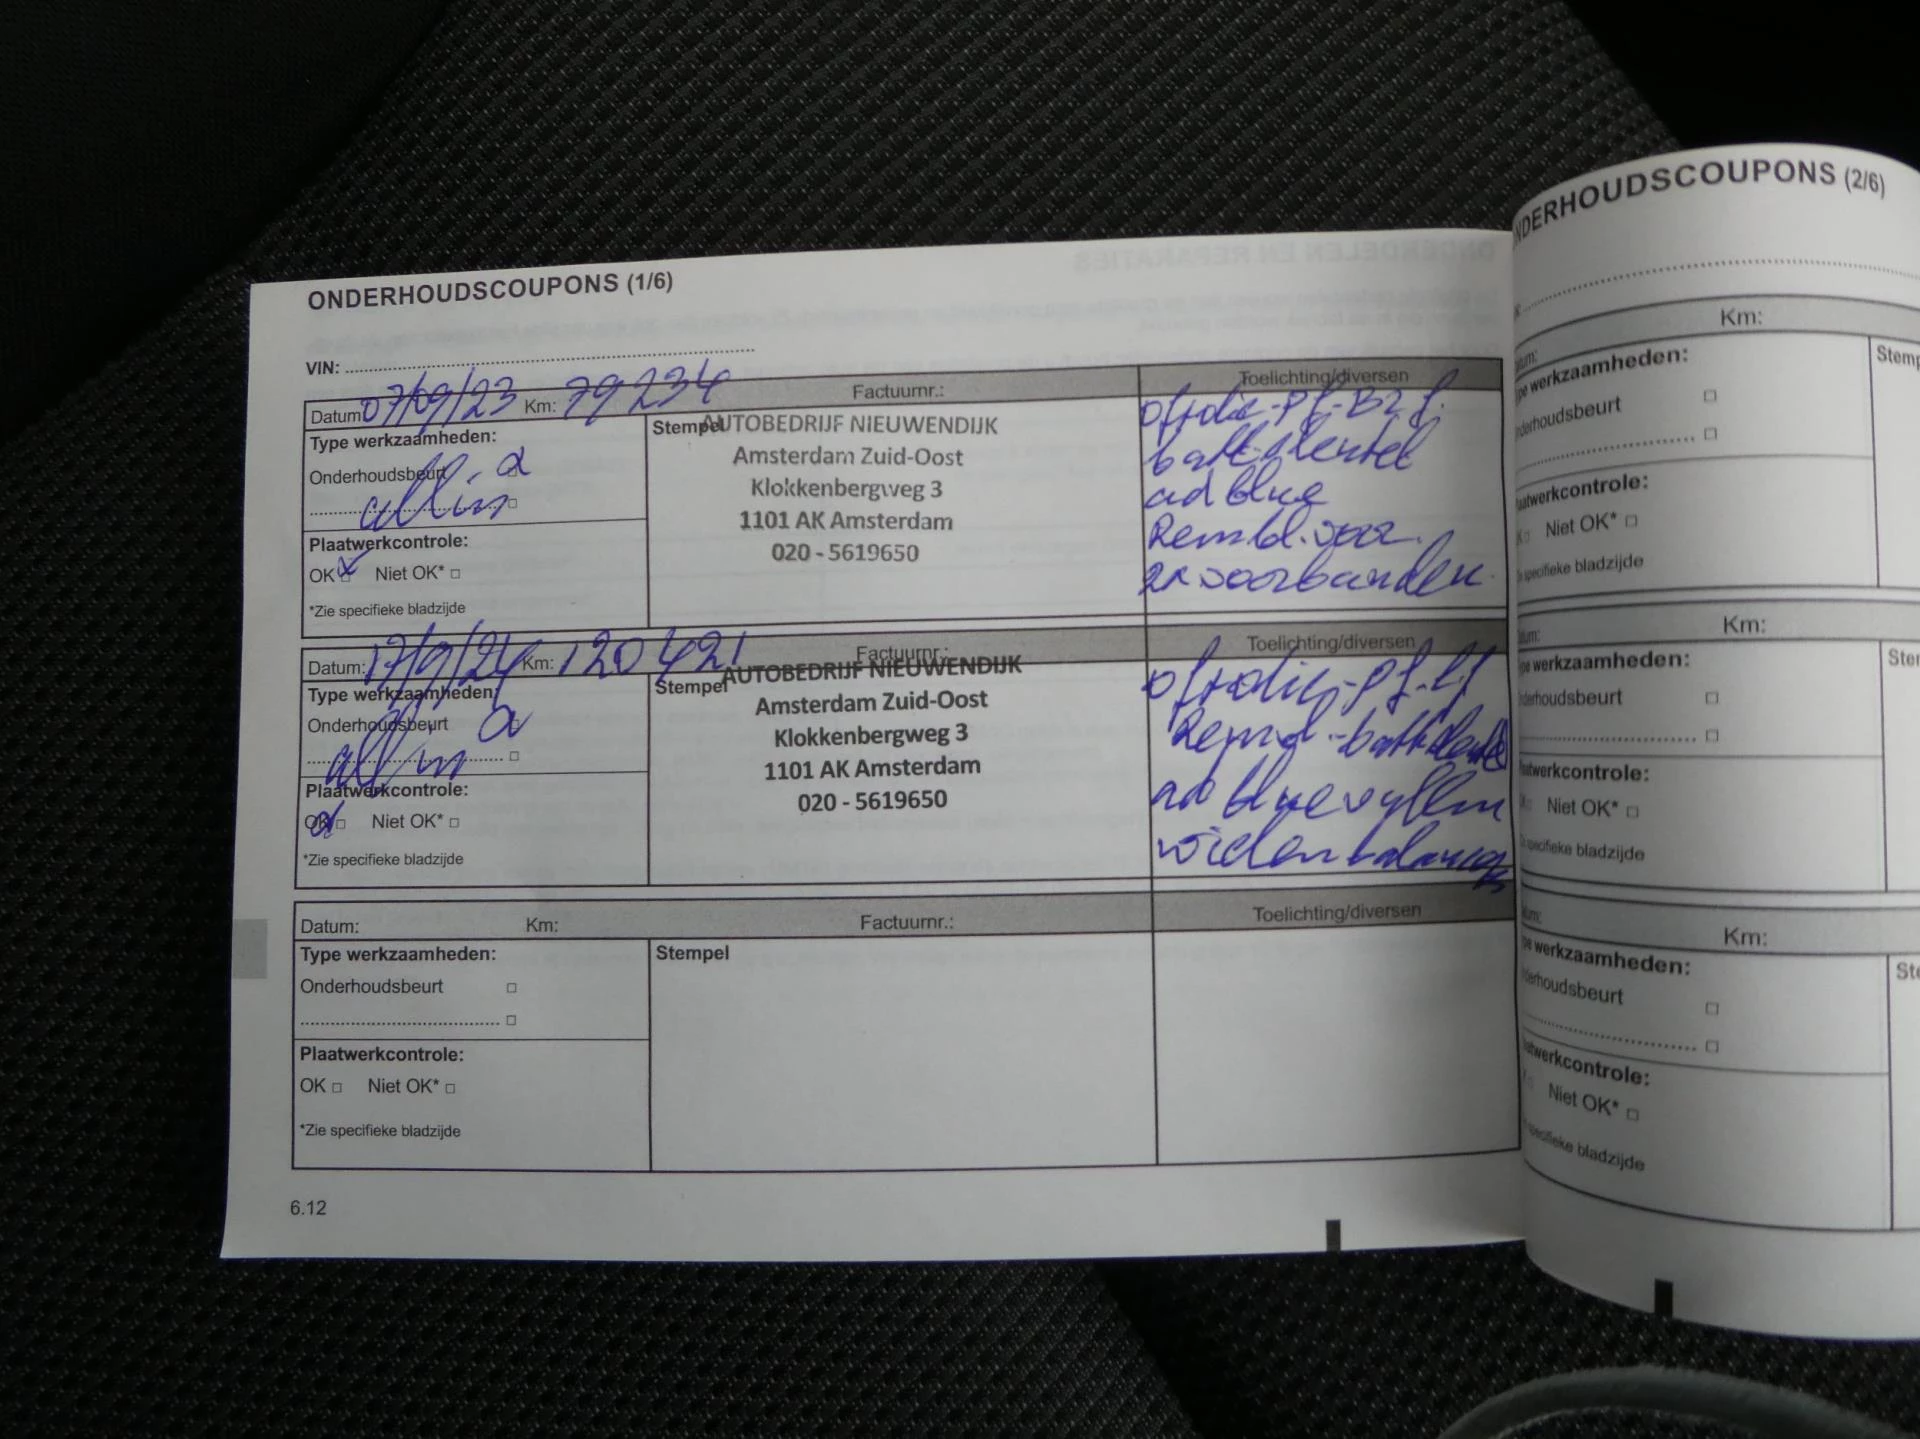 ONDERHOUDSCOUPONS (1/6)
VIN: ........................
Datum: 07/09/23 Km: 79234 Factuurnr.: Toelichting/diversen
Type werkzaamheden:
Onderhoudsbeurt □
allin □
Plaatwerkcontrole:
OK □ Niet OK* □
*Zie specifieke bladzijde
Stempel
AUTOBEDRIJF NIEUWENDIJK
Amsterdam Zuid-Oost
Klokkenbergweg 3
1101 AK Amsterdam
020 - 5619650
batt.sleutel
ad blue
Rembl. voor.
2x voorbanden
Datum: 17/9/24 Km: 120421 Factuurnr.: Toelichting/diversen
Type werkzaamheden:
Onderhoudsbeurt □
all in □
Plaatwerkcontrole:
OK □ Niet OK* □
*Zie specifieke bladzijde
Stempel
AUTOBEDRIJF NIEUWENDIJK
Amsterdam Zuid-Oost
Klokkenbergweg 3
1101 AK Amsterdam
020 - 5619650
ad blue vullen
Datum: Km: Factuurnr.: Toelichting/diversen
Type werkzaamheden:
Onderhoudsbeurt □
........................ □
Plaatwerkcontrole:
OK □ Niet OK* □
*Zie specifieke bladzijde
Stempel
6.12
ONDERHOUDSCOUPONS (2/6)
Km:
werkzaamheden:
Onderhoudsbeurt □
........................ □
Plaatwerkcontrole:
Niet OK* □
specifieke bladzijde
Km:
werkzaamheden:
Onderhoudsbeurt □
........................ □
Plaatwerkcontrole:
Niet OK* □
specifieke bladzijde
Km:
werkzaamheden:
Onderhoudsbeurt □
........................ □
Plaatwerkcontrole:
Niet OK* □
specifieke bladzijde